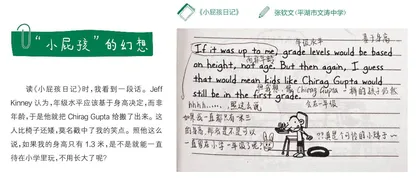 “小屁孩”的幻想
读《小屁孩日记》时,我看到一段话。Jeff
Kinney 认为,年级水平应该基于身高决定,而非
年龄,于是他就把 Chirag Gupta 给搬了出来。这
人比椅子还矮,莫名戳中了我的笑点。照他这么
说,如果我的身高只有 1.3 米,是不是就能一直
待在小学里玩,不用长大了呢?
《小屁孩日记》 张钦文(平湖市文涛中学)
年级水平 基于身高
If it was up to me, grade levels would be based
而非年龄
on height, not age. But then again, I guess
that would mean kids like Chirag Gupta would
一样的孩子必然
still be in the first grade.
hhhh……, 照这么说, 在一年级
如果我一直都只有一米三
的身高,那我是不是可以
一直留在小学一年级了呢?